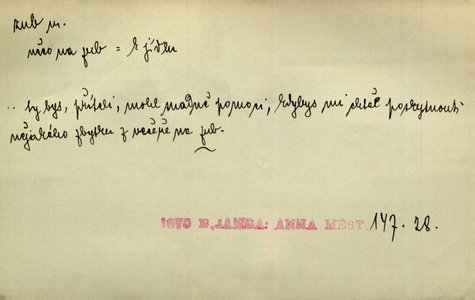 zub m.
něco na zub = k jídlu
.. ty bys, příteli, mohl snadně pomoci, kdybys mi chtěl poskytnouti
nějakého zbytku z večeře na zub.
1879 B. JANDA: ANNA MĚST. 147. 28.